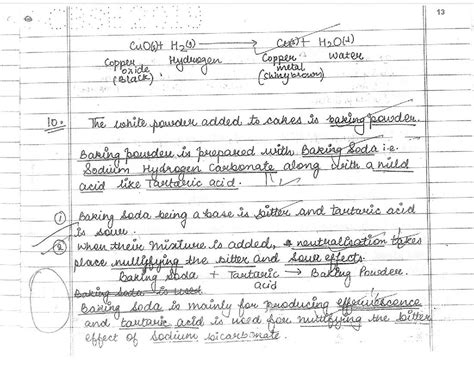 13
CuO(s) + H₂(g) → Cu(s) + H₂O(l)
Copper oxide (Black) Hydrogen Copper metal (Shiny brown) Water
10. The white powder added to cakes is baking powder.
Baking powder is prepared with Baking Soda i.e.
Sodium Hydrogen Carbonate along with a mild
acid like Tartaric acid.
① Baking Soda being a base is bitter and tartaric acid
is sour.
② When their mixture is added, neutralisation takes
place nullifying the bitter and sour effects.
Baking Soda + Tartaric acid → Baking Powder.
Baking Soda is used
Baking Soda is mainly for producing effervescence
and tartaric acid is used for nullifying the bitter
effect of Sodium bicarbonate.